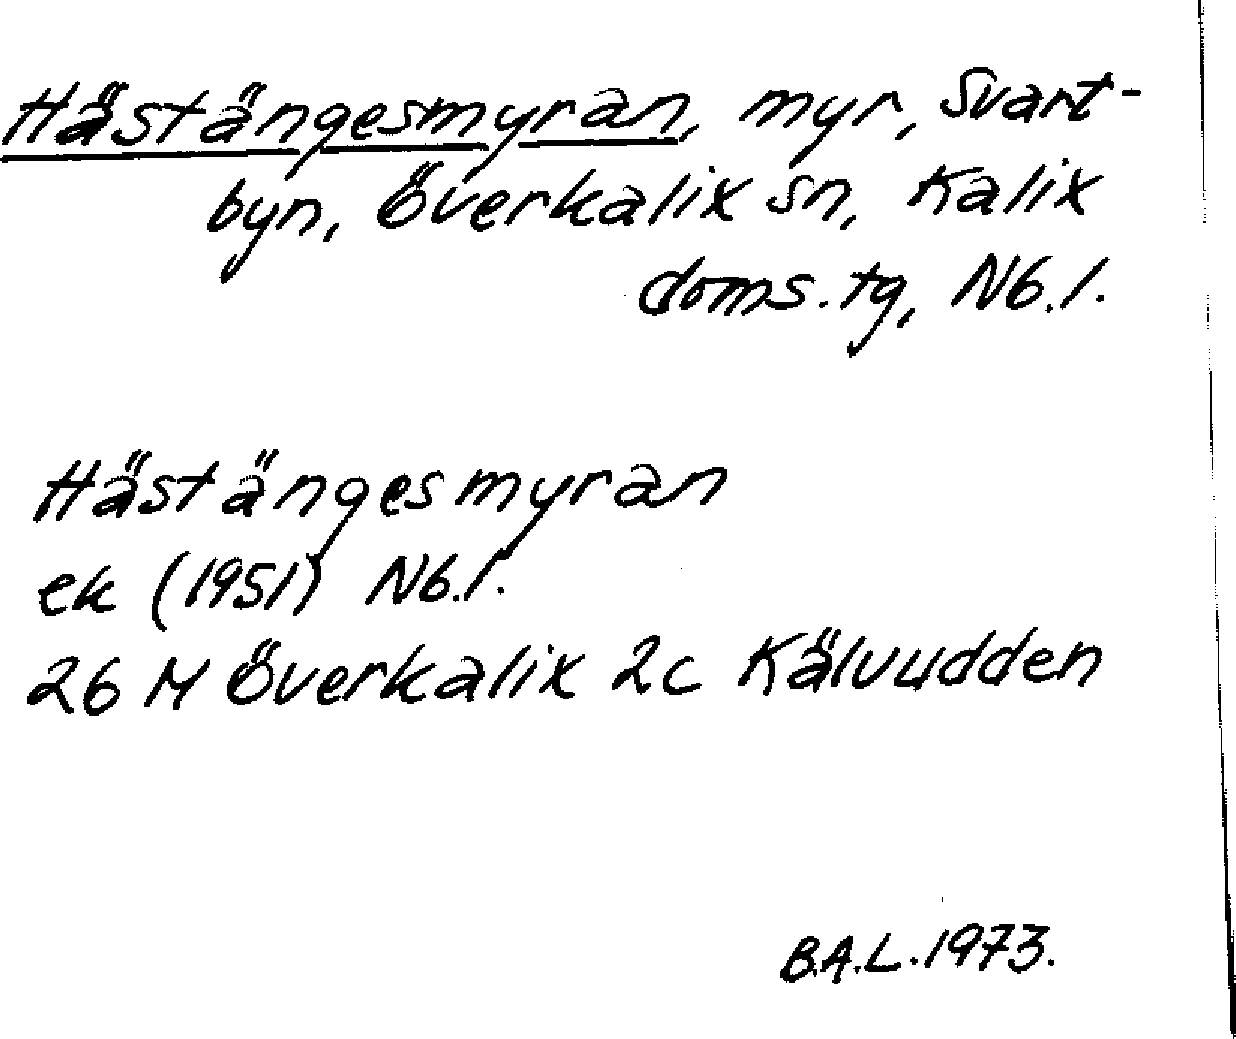 Hästängesmyran, myr, Svart-
byn, Överkalix sn, Kalix
doms. tg, Nb. l.
Hästängesmyran
ek (1951) Nb. l.
26 M Överkalix 2c Kälvudden
B.A.L. 1973.